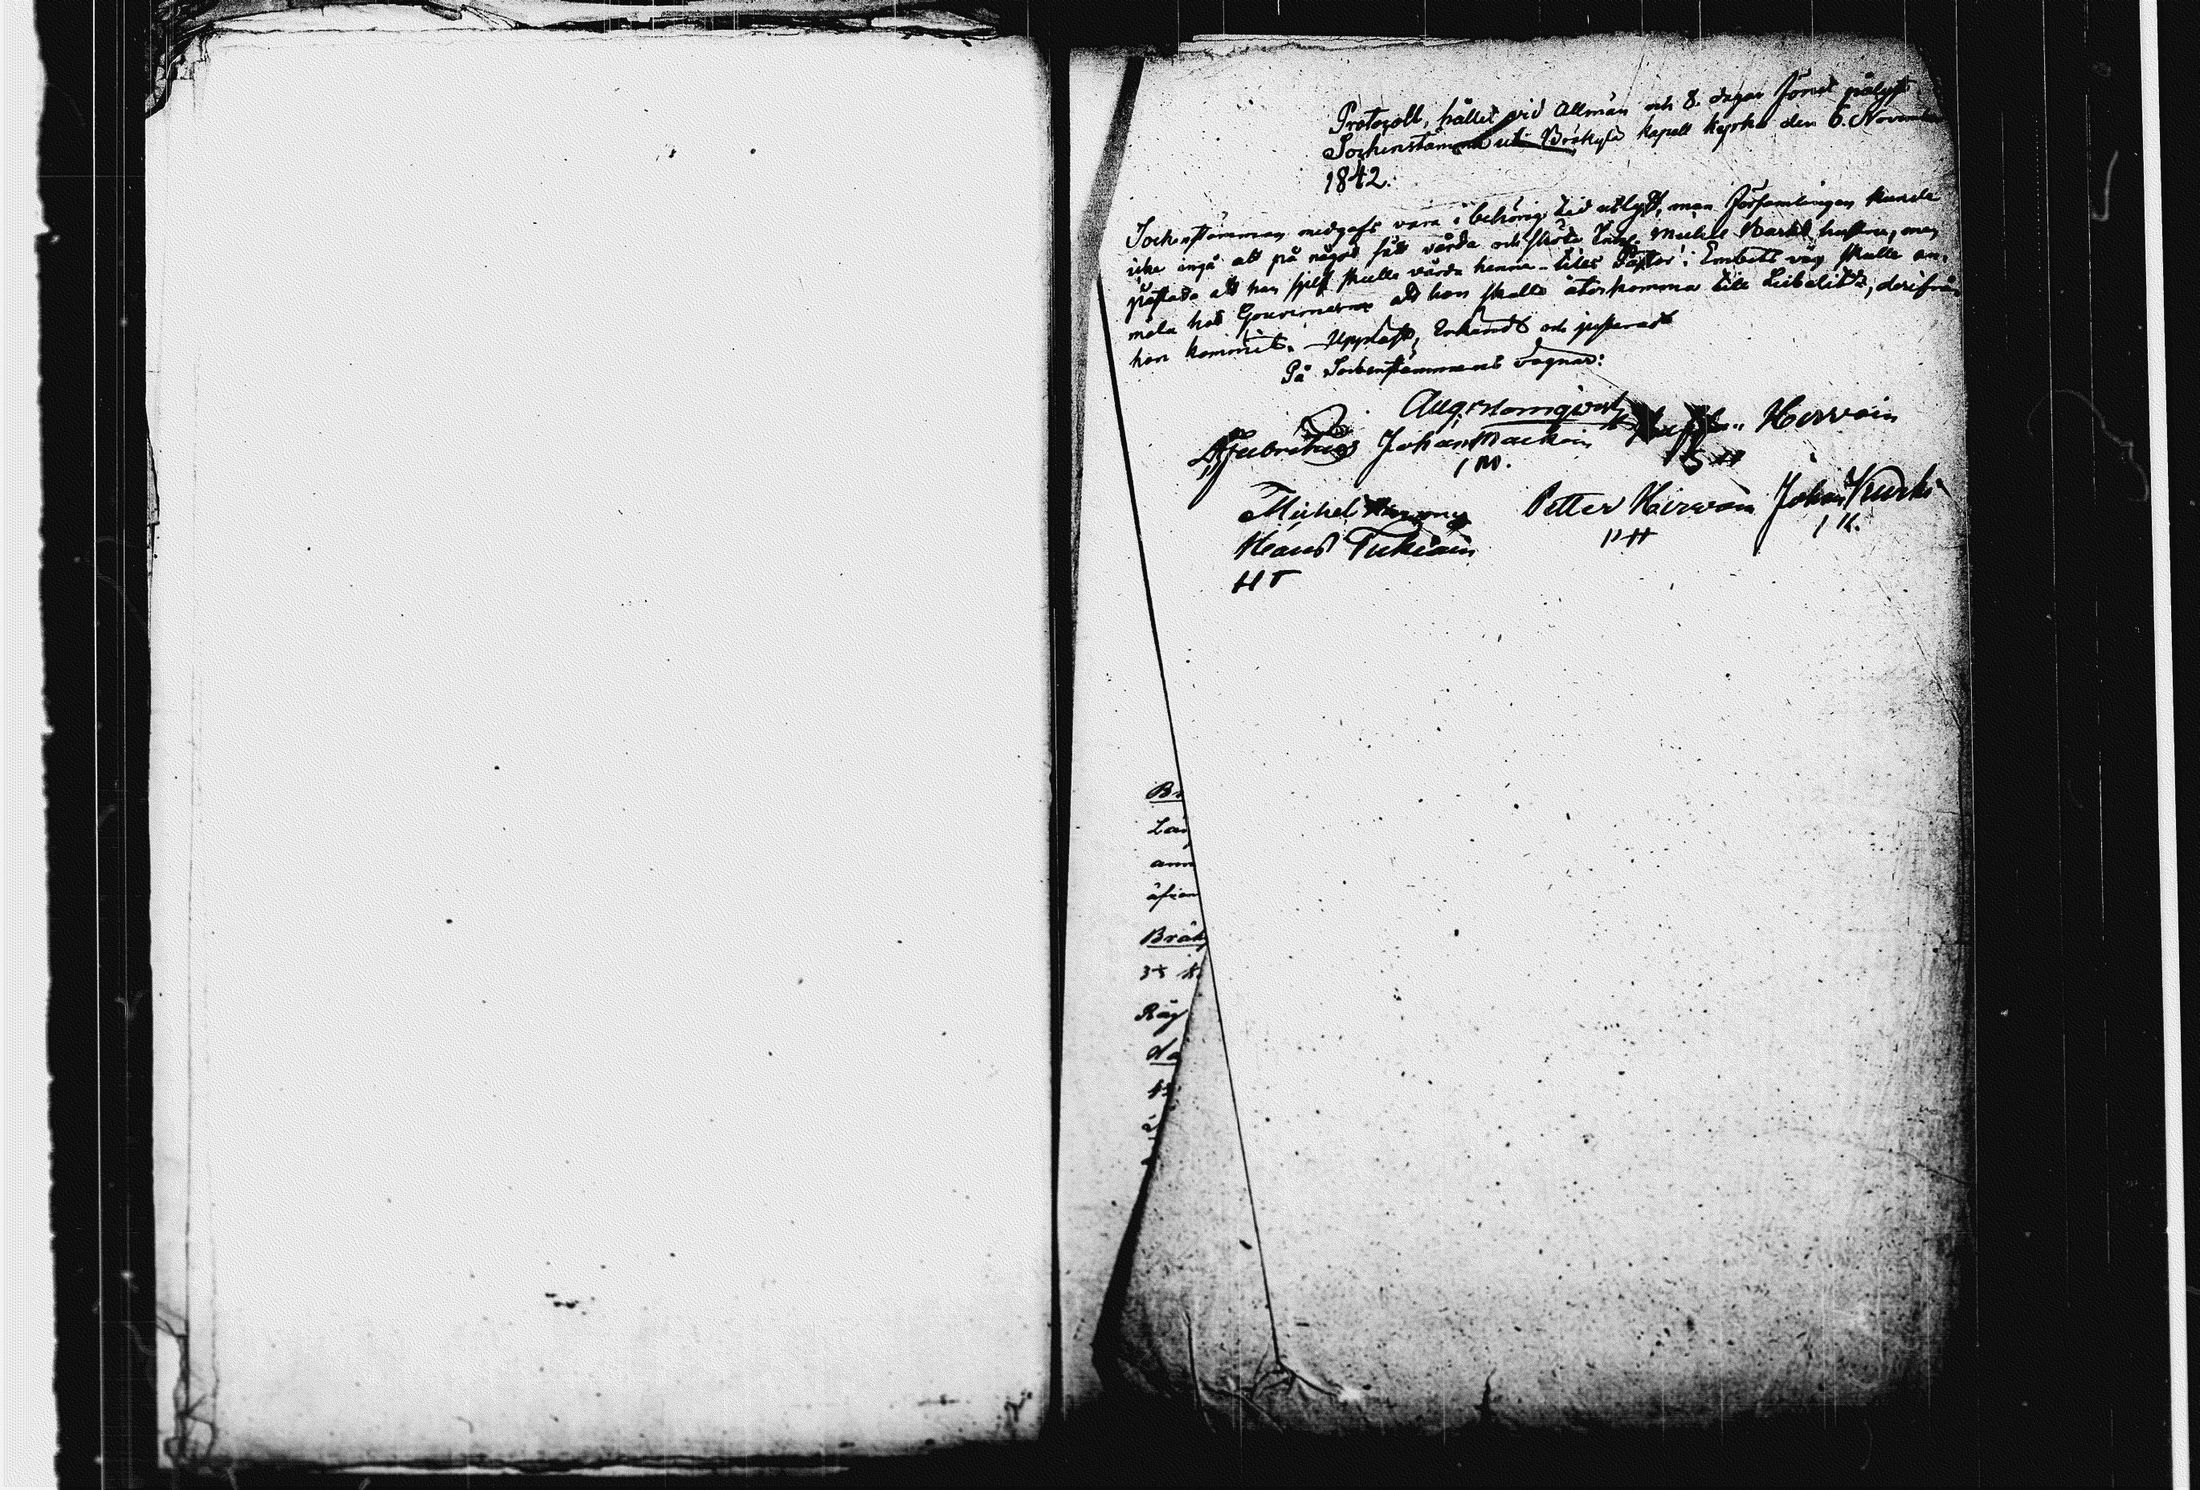 Protocoll, hållet vid Allmän och 8. dagar förut pålyst
Sockenstämma uti Bräkylä kapell kyrka den 6. November
1842.
Sockenstämman medgafs vara i behörig tid utlyst, men Församlingen kunde
icke ingå att på något sätt vårda och sköta Michel hustru, men
påstodo att han sjelf skulle vårda henne eller Pastor i Embets väg skulle an-
mäla hos Gouverneuren att hon skulle återkomma till Libelits, derifrån
hon kommit. Uppläst, Erkändt och justeradt
På Sockenstämmans vägnar:
Aug. Hirvoin
Johan
I M. S H
Michel Petter Hirvoin Johan Kurki
P H I K.
Hans Tukiain
H T
Br
Lan
ann
äfven
Bräk
35
Råg